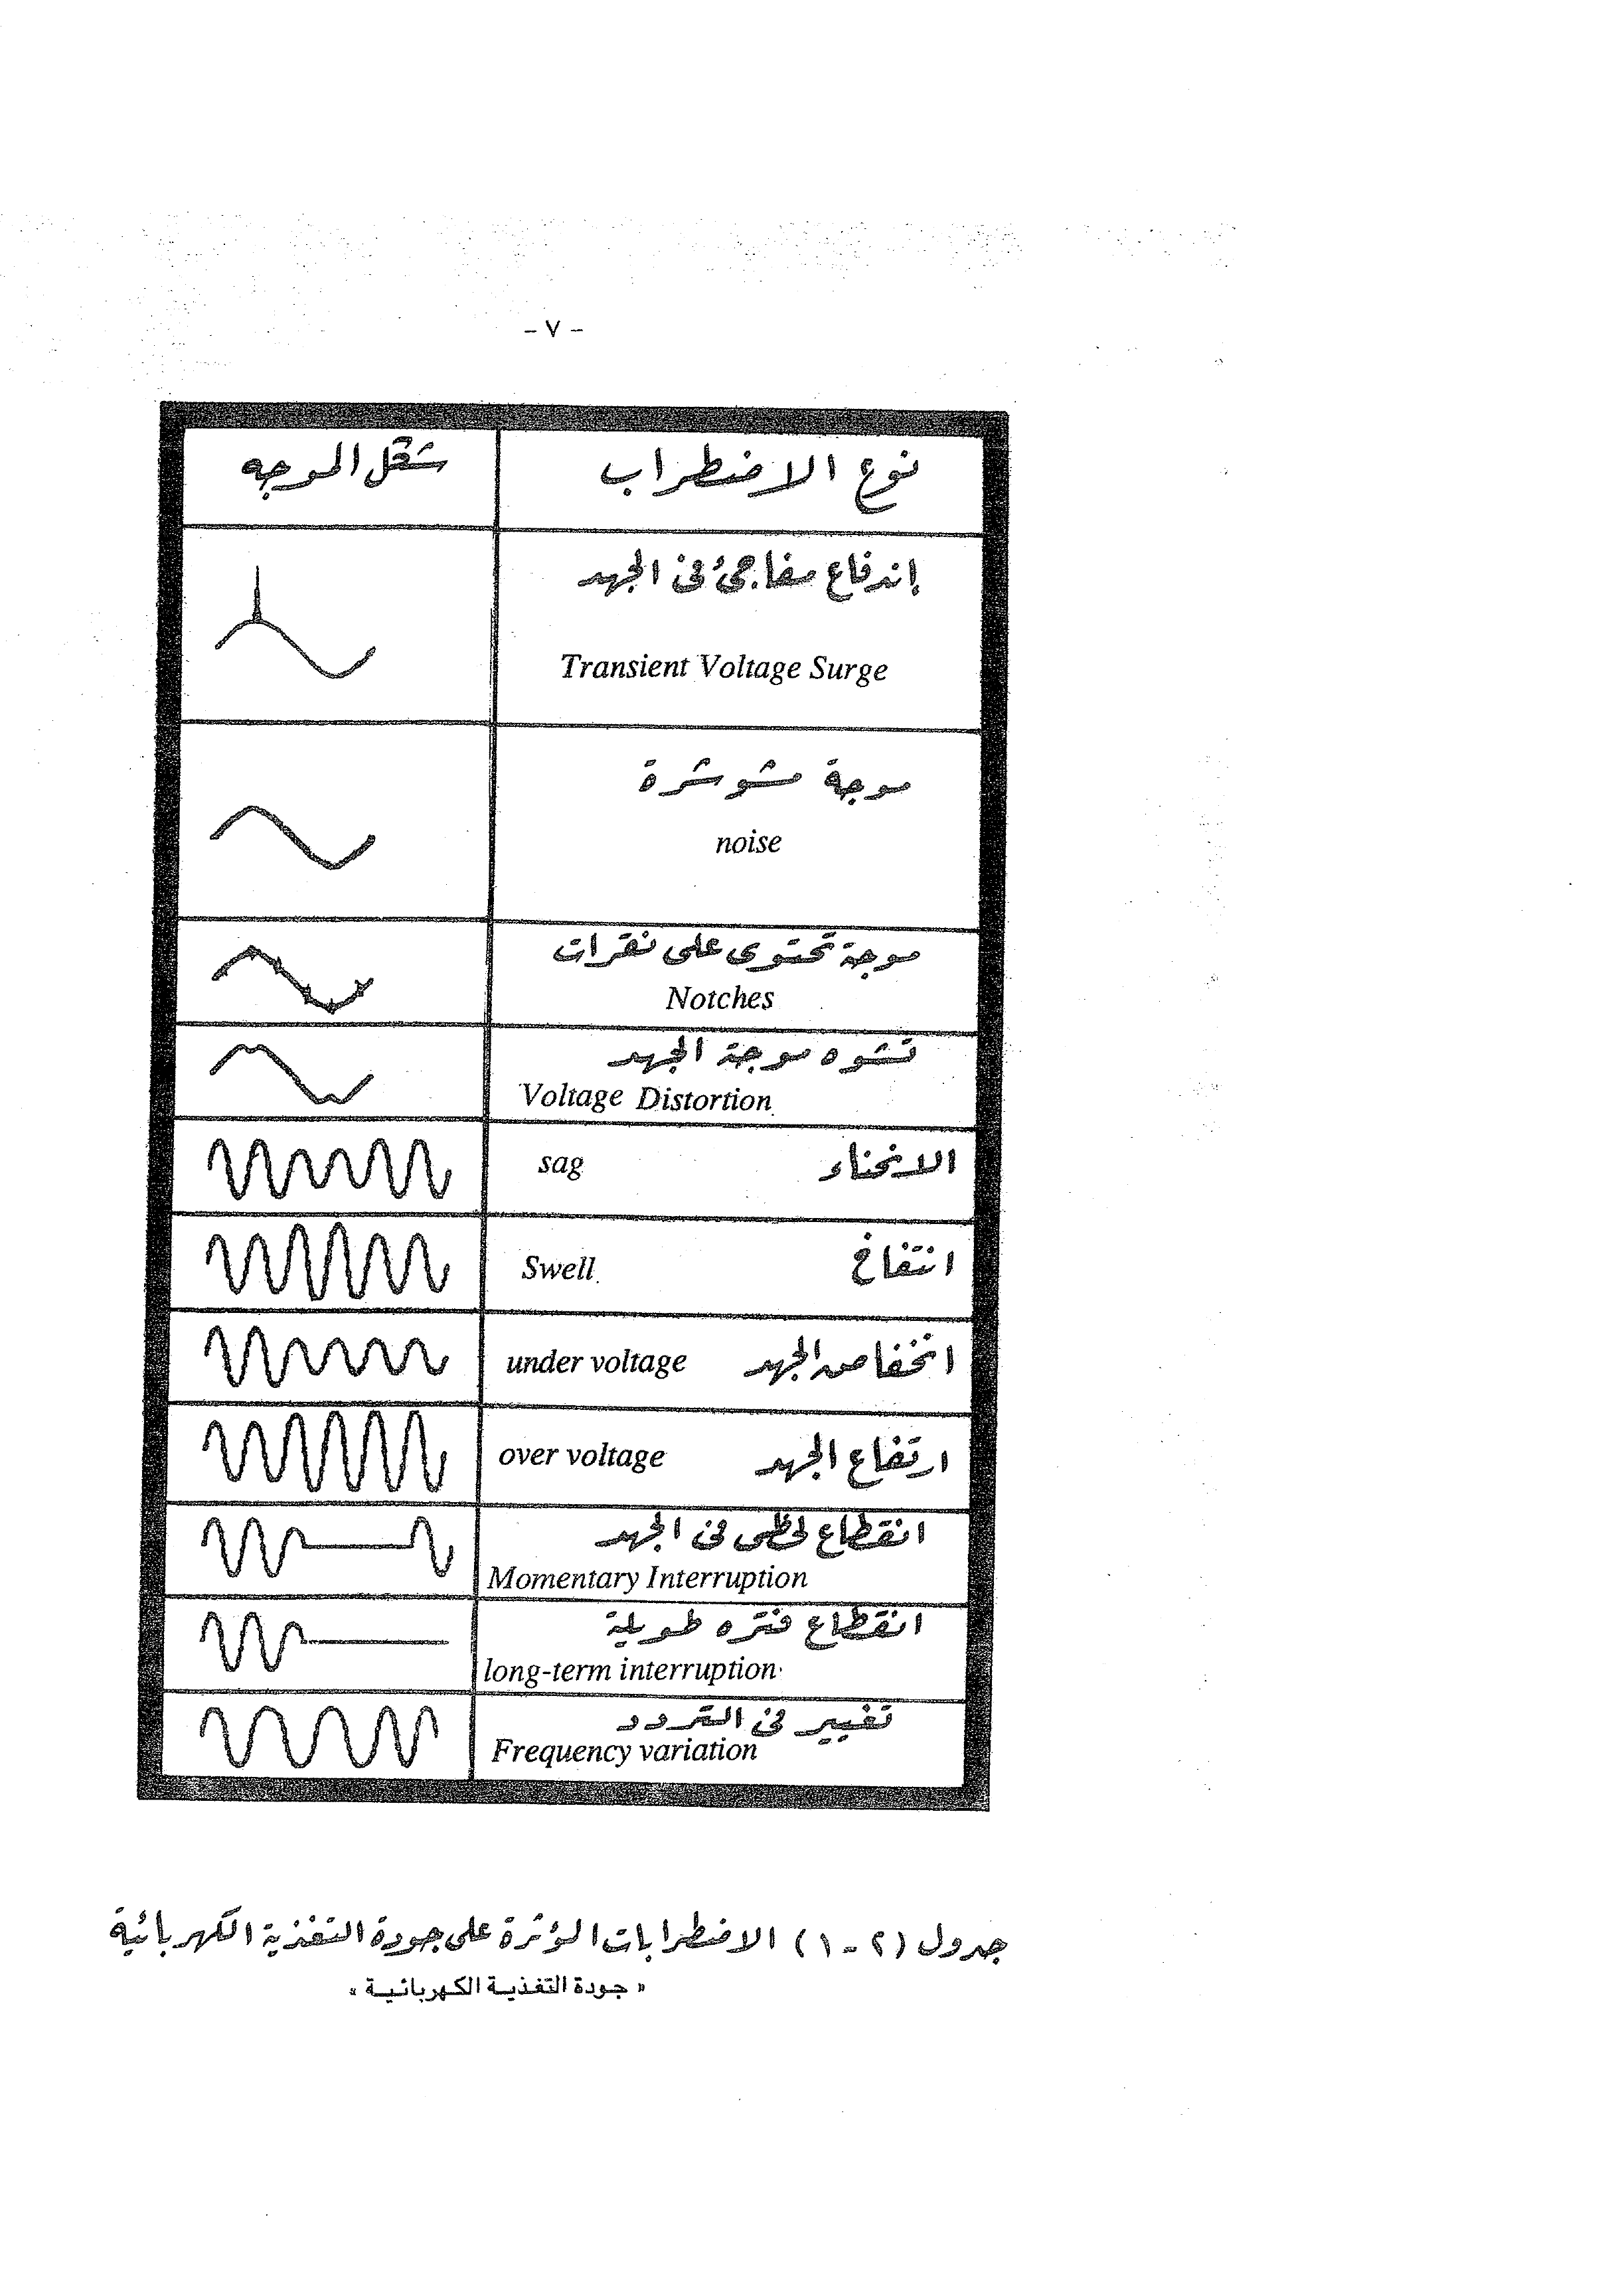 - ٧ -
نوع الاضطراب	شكل الموجه
إندفاع مفاجئ فى الجهد
Transient Voltage Surge
موجة مشوشرة
noise
موجة تحتوى على نقرات
Notches
تشوه موجة الجهد
Voltage Distortion
الانحناء sag
انتفاخ Swell
انخفاض الجهد under voltage
ارتفاع الجهد over voltage
انقطاع لحظى فى الجهد
Momentary Interruption
انقطاع فتره طويلة
long-term interruption
تغيير فى التردد
Frequency variation
جدول (٢-١) الاضطرابات المؤثرة على جودة التغذية الكهربائية
« جودة التغذية الكهربائية »